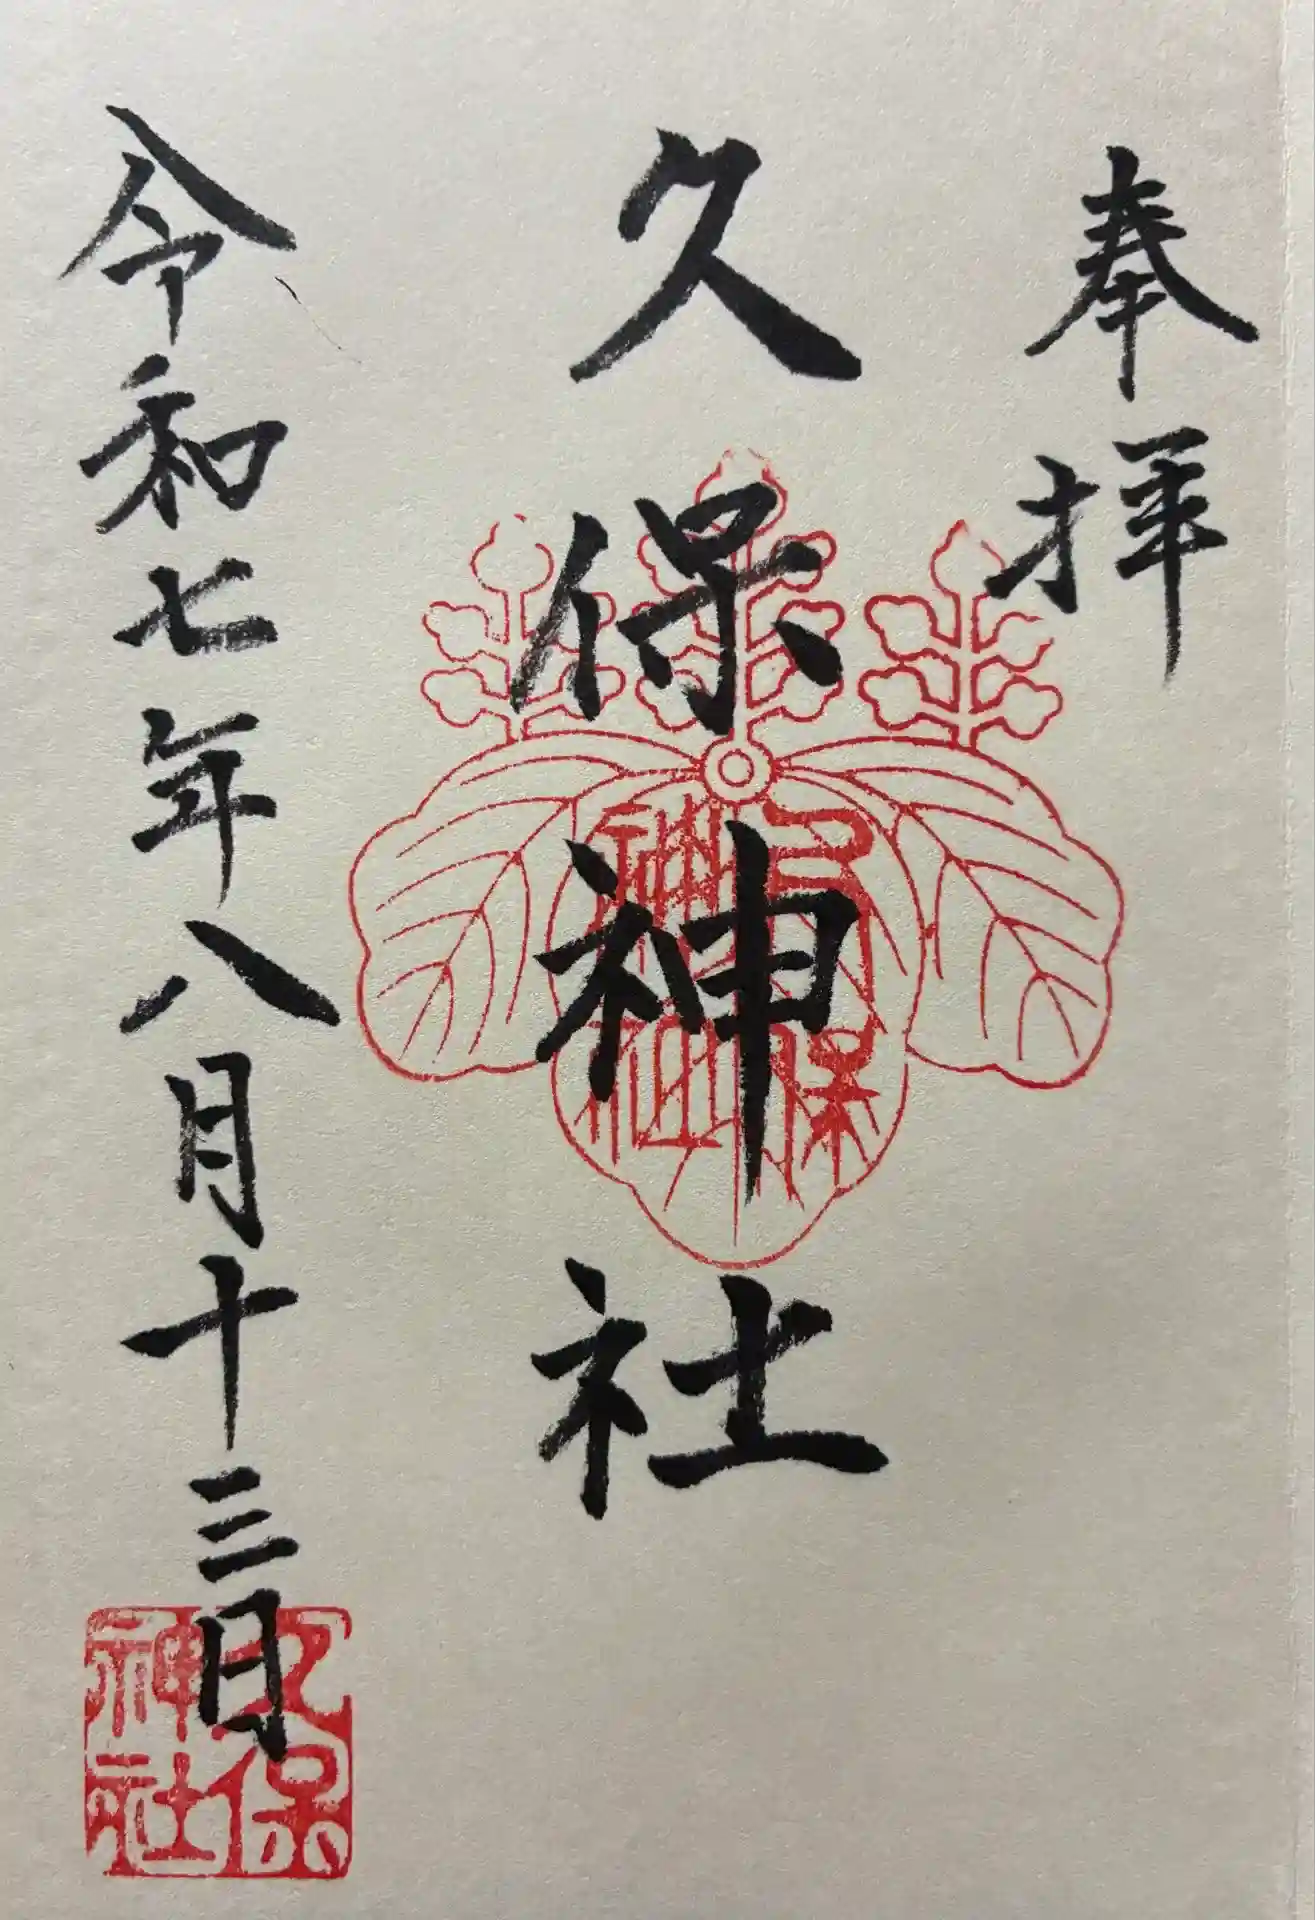 奉拝
久保神社
令和七年八月十三日
久保神社
久保神社